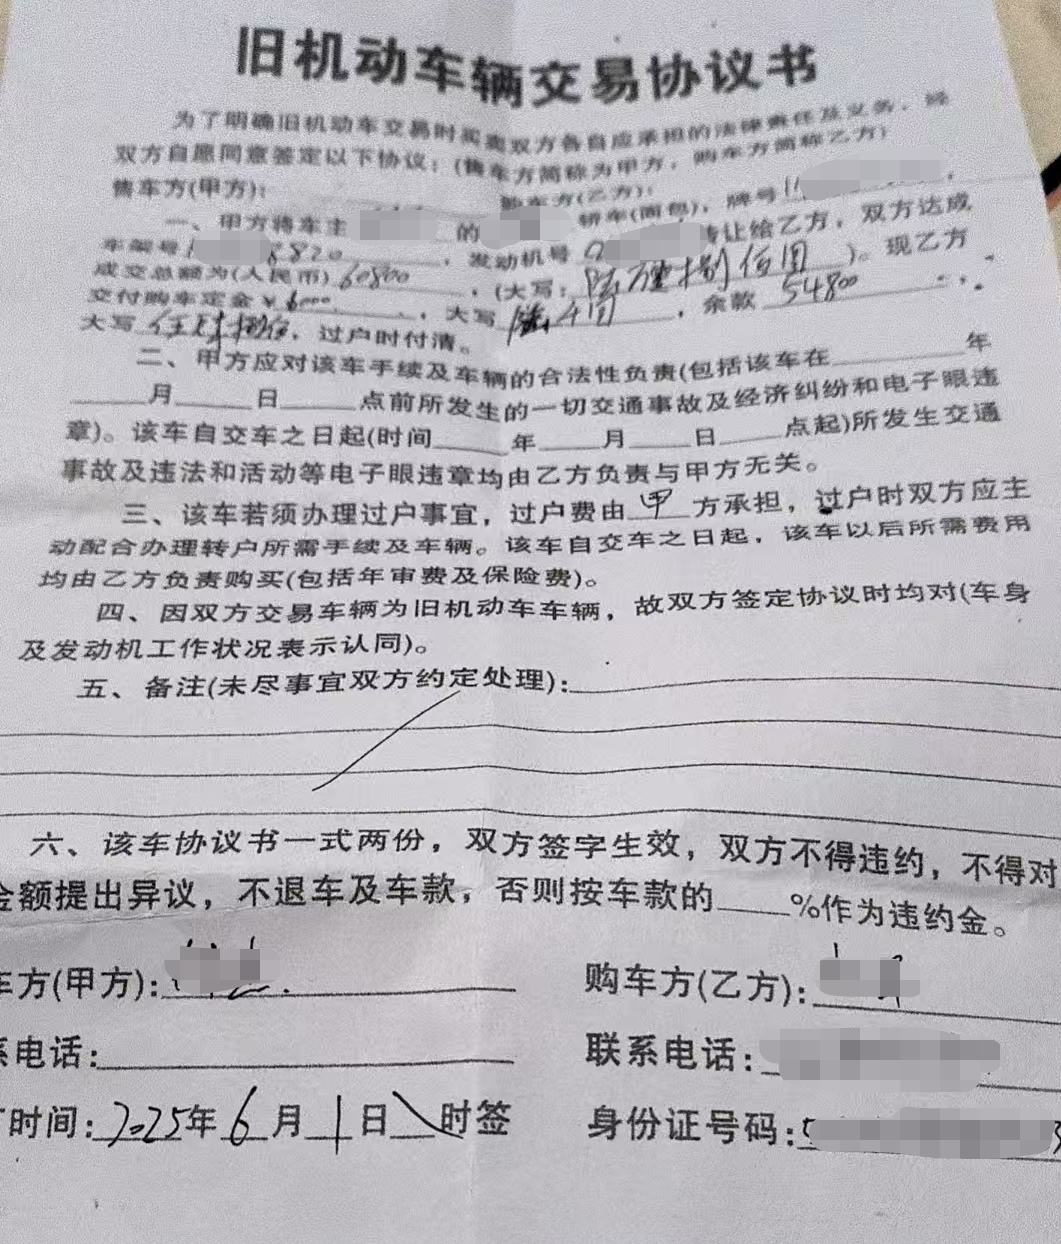 旧机动车辆交易协议书
为了明确旧机动车交易时买卖双方各自应承担的法律责任及义务，经
双方自愿同意签定以下协议：(售车方简称为甲方，购车方简称乙方)
售车方(甲方)： 购车方(乙方)：
一、甲方将车主 的 轿车(面包)，牌号 ，
车架号 8820 ，发动机号 转让给乙方，双方达成
成交总额为(人民币) 60800 ，(大写： 陆万零捌佰圆 )。现乙方
交付购车定金￥ 6000 ，大写 陆仟圆 ，余款 54800
大写 伍 肆捌佰，过户时付清。
二、甲方应对该车手续及车辆的合法性负责(包括该车在 年
月 日 点前所发生的一切交通事故及经济纠纷和电子眼违
章)。该车自交车之日起(时间 年 月 日 点起)所发生交通
事故及违法和活动等电子眼违章均由乙方负责与甲方无关。
三、该车若须办理过户事宜，过户费由 甲 方承担，过户时双方应主
动配合办理转户所需手续及车辆。该车自交车之日起，该车以后所需费用
均由乙方负责购买(包括年审费及保险费)。
四、因双方交易车辆为旧机动车车辆，故双方签定协议时均对(车身
及发动机工作状况表示认同)。
五、备注(未尽事宜双方约定处理)：
六、该车协议书一式两份，双方签字生效，双方不得违约，不得对
金额提出异议，不退车及车款，否则按车款的 %作为违约金。
车方(甲方)： 购车方(乙方)：
系电话： 联系电话：
时间：2025年6月1日 时签 身份证号码：